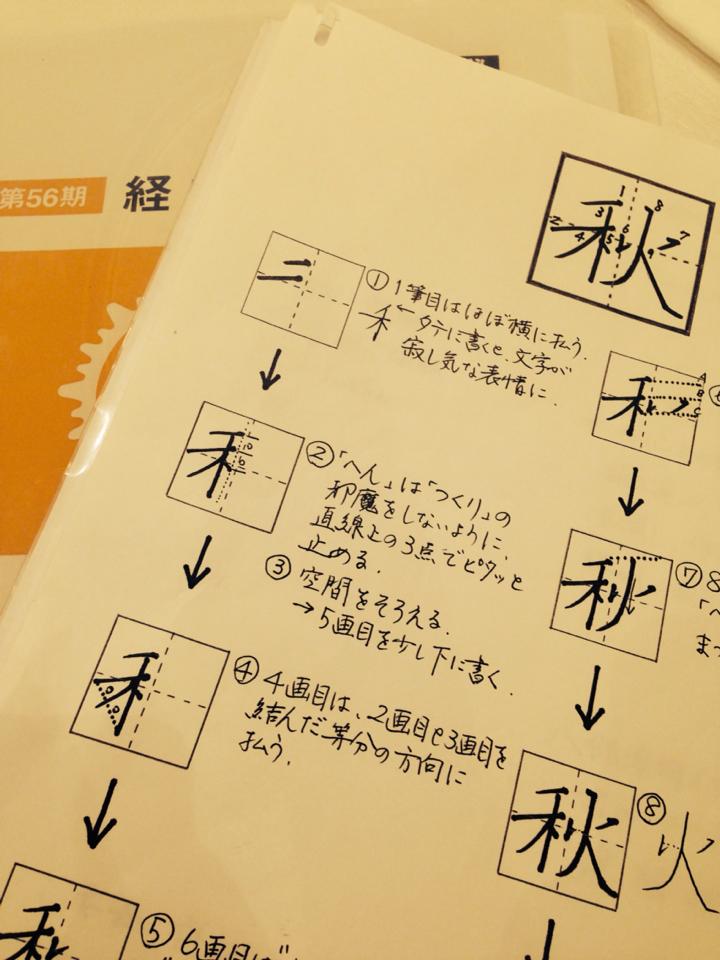 第56期 経
秋
1 2 3 4 5 6 7 8
① 1筆目はほぼ横に払う.
禾 ← タテに書くと、文字が
寂し気な表情に.
② 「へん」は「つくり」の
邪魔をしないように、
直線上の3点でピタッと
止める.
③ 空間をそろえる.
→ 5画目を少し下に書く.
④ 4画目は、2画目と3画目を
結んだ等分の方向に
払う.
⑤ 6画目は
A
B
C
⑦ 8
「へ
まっ
秋
⑧ 火